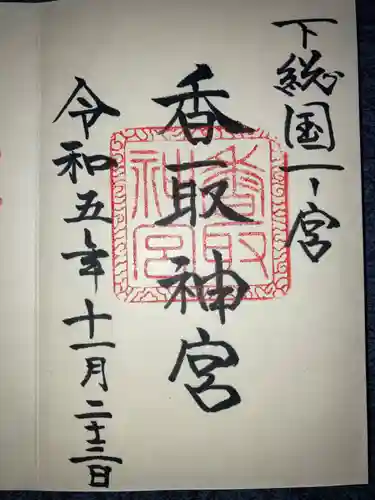 下総国一宮
香取神宮
香取神宮
令和五年十一月二十三日